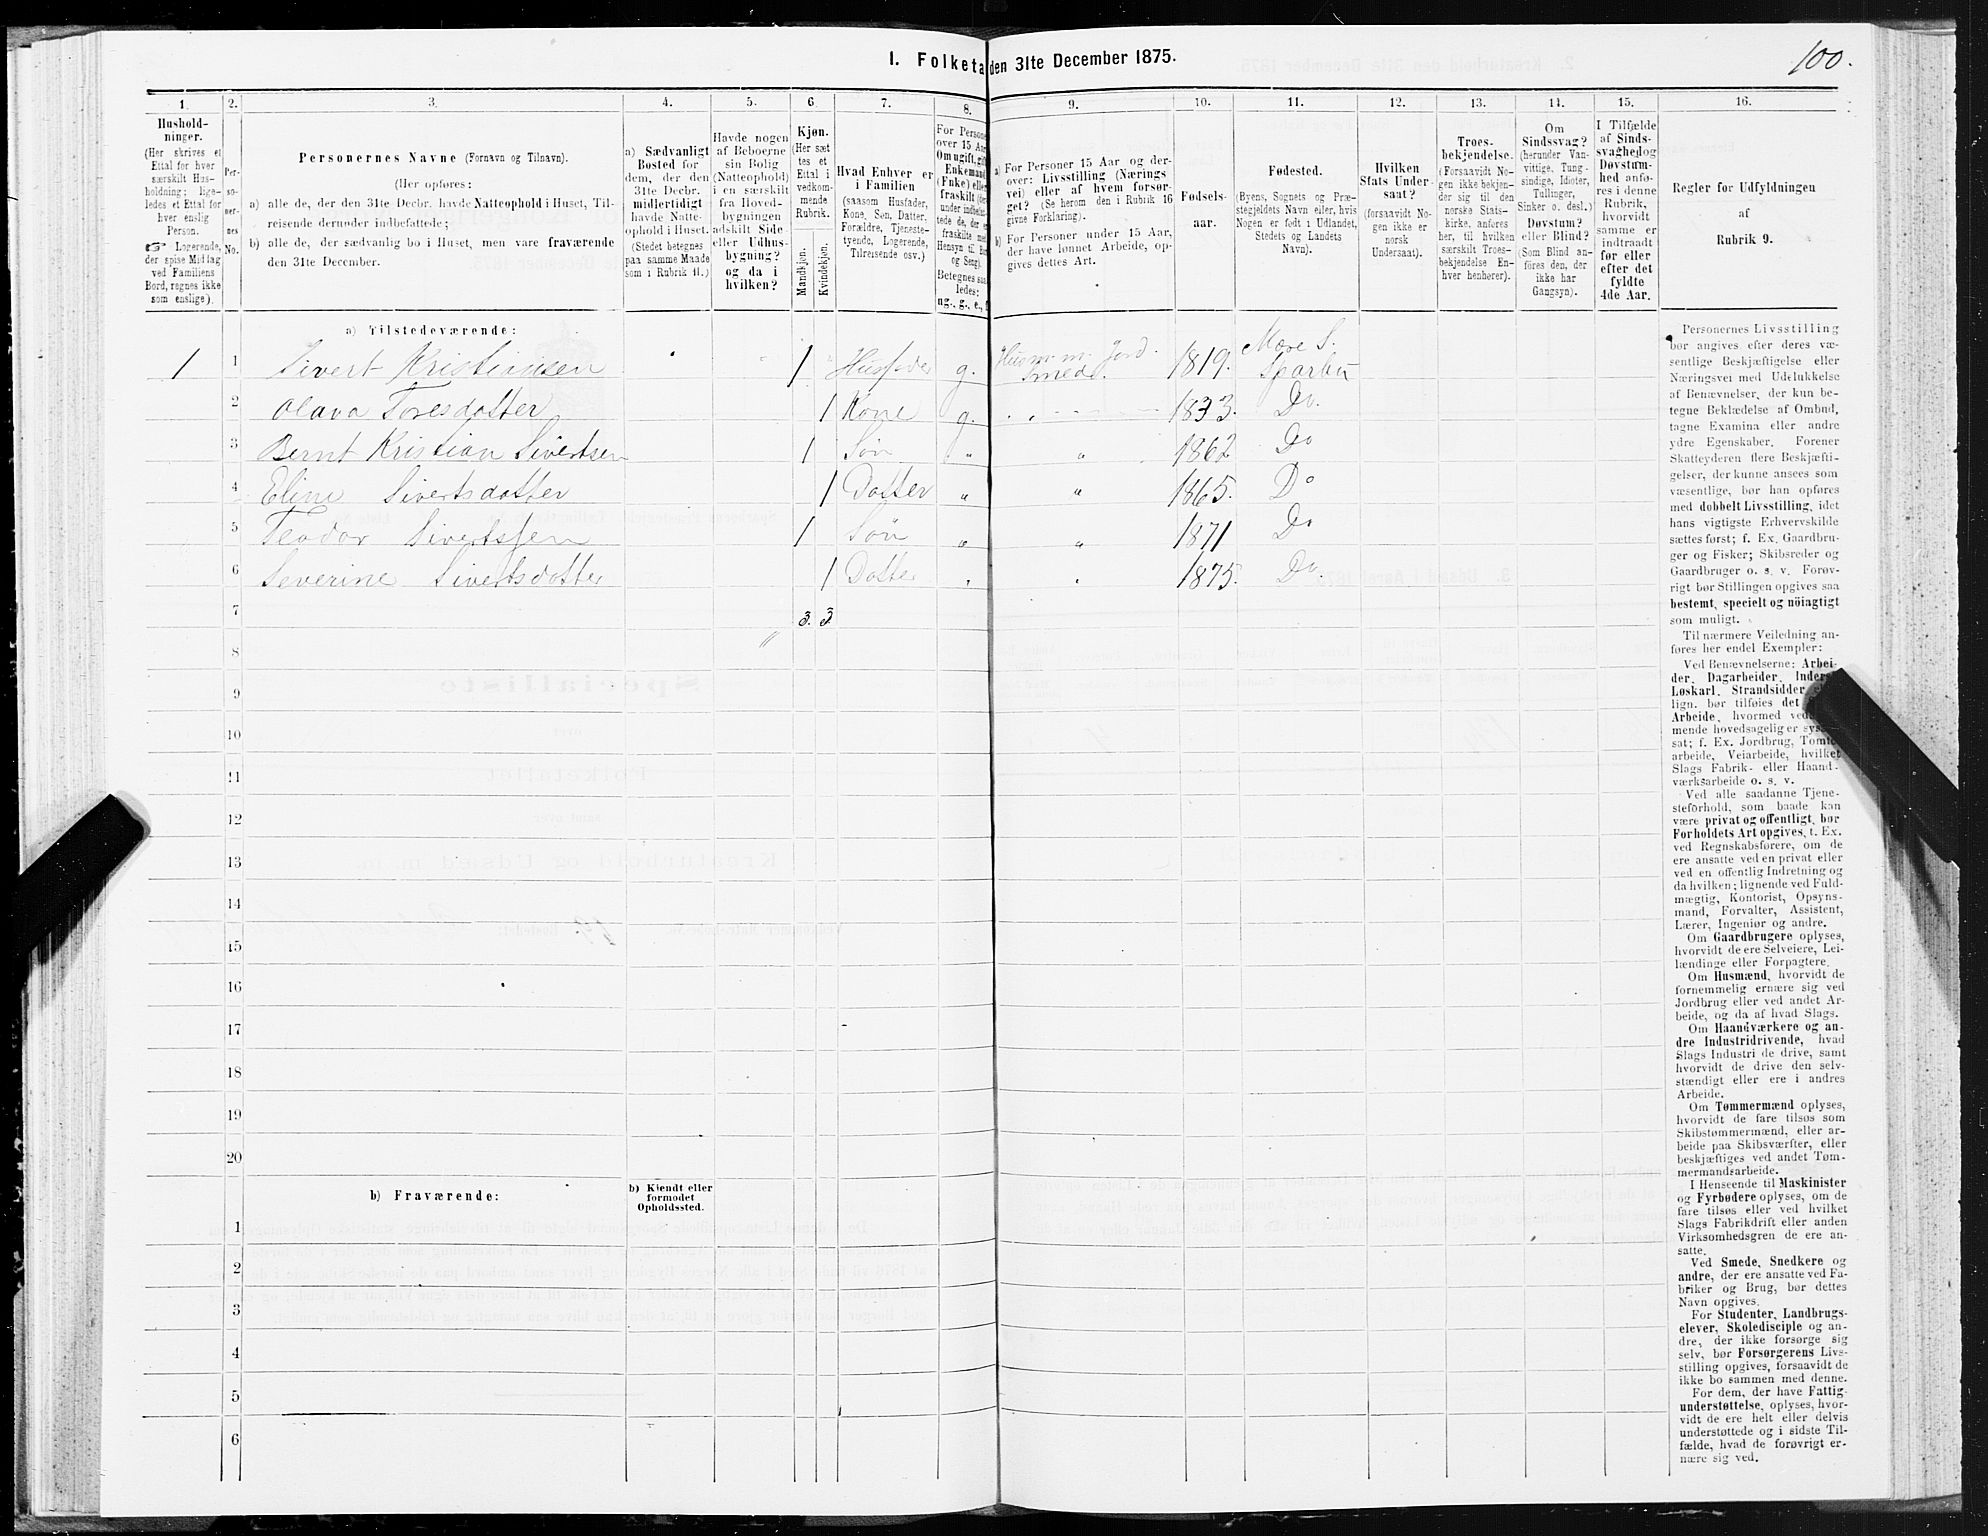 1. Folketa den 31te December 1875.
100.
1. 2. 3. 4. 5. 6. 7. 8. 9. 10. 11. 12. 13. 14. 15. 16.
Hushold-
ninger.
(Her skrives et
Ettal for hver
særskilt Hus-
holdning; lige-
ledes et Ettal for
hver enslig
Person.
☞ Logerende,
der spise Middag
ved Familiens
Bord, regnes ikke
som enslige).
Per-
so-
ner-
nes
No.
Personernes Navne (Fornavn og Tilnavn).
(Her opføres:
a) alle de, der den 31te Decbr. havde Natteophold i Huset, Til-
reisende derunder indbefattede;
b) alle de, der sædvanlig bo i Huset, men vare fraværende
den 31te December.
a) Sædvanligt
Bosted for
dem, der den
31te Decbr.
midlertidigt
havde Natte-
ophold i Huset.
(Stedet betegnes
paa samme Maade
som i Rubrik 11.)
Havde nogen
af Beboerne
sin Bolig
(Natteophold)
i en særskilt
fra Hoved-
bygningen
adskilt Side-
eller Udhus-
bygning?
og da i
hvilken?
Kjøn.
(Her sæt
tes et
Ettal i
vedkom-
mende
Rubrik.
Mandkjøn.
Kvindekjøn.
Hvad Enhver er
i Familien
(saasom Husfader,
Kone, Søn, Datter,
Forældre, Tjeneste-
tyende, Logerende,
Tilreisende osv.)
For Persone
over 15 Aar
Om ugift, gift
Enkemand
(Enke) eller
fraskilt (der
under indbefat
tede de, der e
fraskilte med
Hensyn til Bo
og Seng).
Betegnes saa
ledes:
ug., g., e., f
a) For Personer 15 Aar og der-
over: Livsstilling (Nærings
vei) eller af hvem forsør-
get? (Se herom den i Rubrik 16
givne Forklaring).
b) For Personer under 15 Aar,
der have lønnet Arbeide, op-
gives dettes Art.
Fødsels-
aar.
Fødested.
(Byens, Sognets og Præ-
stegjeldets Navn eller, hvis
Nogen er født i Udlandet,
Stedets og Landets
Navn).
Hvilken
Stats Under-
saat?
(forsaavidt No-
gen ikke er
norsk
Undersaat).
Troes-
bekjendelse.
(Forsaavidt No-
gen ikke bekjen-
der sig til den
norske Stats-
kirke, anføres
her, til hvilken
særskilt Troes-
bekjendelse En-
hver henhører).
Om
Sindssvag?
(herunder Van-
vittige, Tung-
sindige, Idioter,
Tullinger,
Sinker o. desl.)
Døvstum?
eller Blind?
(Som Blind an-
føres den, der
ikke har
Gangsyn).
I Tilfælde
af Sinds-
svaghed og
Døvstum-
hed anfø-
res i denne
Rubrik,
hvorvidt
samme er
indtraadt
før eller
efter det
fyldte
4de Aar.
Regler for Udfyldningen
af
Rubrik 9.
a) Tilstedeværende:
1 1 Sivert Kristiansen 1 Husfader g. Husm. m. Jord. Smed. 1819. Mære S. Sparbu
2 Olava Toresdatter 1 Kone g. 1833. Do.
3 Bernt Kristian Sivertsen 1 Søn „ „ 1862 Do
4 Eline Sivertsdatter 1 Datter „ „ 1865. Do
5 Teodor Sivertsen 1 Søn „ „ 1871 Do
6 Severine Sivertsdatter 1 Datter „ „ 1875. Do.
7 3. 3.
8
9
10
11
12
13
14
15
16
17
18
19
20
b) Fraværende:
b) Kjendt eller
formodet
Opholdssted.
1
2
3
4
5
6
Personernes Livsstilling
bør angives efter deres væ-
sentlige Beskjæftigelse eller
Næringsvei med Udelukkelse
af Benævnelser, der kun be-
tegne Beklædelse af Ombud,
tagne Examina eller andre
ydre Egenskaber. Forener
Skatteyderen flere Beskjæfti-
gelser, der kunne ansees som
væsentlige, bør han opføres
med dobbelt Livsstilling, idet
hans vigtigste Erhvervskilde
sættes først; f. Ex. Gaardbru-
ger og Fisker; Skibsreder og
Gaardbruger o. s. v. Forøv-
rigt bør Stillingen opgives saa
bestemt, specielt og nöiagtigt
som muligt.
Til nærmere Veiledning an-
føres her endel Exempler:
Ved Benævnelserne: Arbei-
der, Dagarbeider, Inder
Løskarl, Strandsidder
lign. bør tilføies det
Arbeide, hvormed ved
mende hovedsagelig er sys
sat; f. Ex. Jordbrug, Tømt
arbeide, Veiarbeide, hvilket
Slags Fabrik- eller Haand-
værksarbeide o. s. v.
Ved alle saadanne Tjene-
steforhold, som baade kan
være privat og offentligt, bør
Forholdets Art opgives, t. Ex.
ved Regnskabsførere, om de
ere ansatte ved en privat eller
ved en offentlig Indretning og
da hvilken; lignende ved Fuld-
mægtig, Kontorist, Opsyns-
mand, Forvalter, Assistent,
Lærer, Ingeniør og andre.
Om Gaardbrugere oplyses,
hvorvidt de ere Selveiere, Lei-
lændinge eller Forpagtere.
Om Husmænd, hvorvidt de
fornemmelig ernære sig ved
Jordbrug eller ved andet Ar-
beide, og da af hvad Slags.
Om Haandværkere og an-
dre Industridrivende, hvad
Slags Industri de drive, samt
hvorvidt de drive den selv-
stændigt eller ere i andres
Arbeide.
Om Tømmermænd oplyses,
hvorvidt de fare tilsøs som
Skibstømmermænd, eller ar-
beide paa Skibsværfter, eller
beskjæftiges ved andet Tøm-
mermandsarbeide.
I Henseende til Maskinister
og Fyrbødere oplyses, om de
fare tilsøs eller ved hvilket
Slags Fabrikdrift eller anden
Virksomhedsgren de ere an-
satte.
Ved Smede, Snedkere og
andre, der ere ansatte ved Fa-
briker og Brug, bør dettes
Navn opgives.
For Studenter, Landbrugs-
elever, Skoledisciple og an-
dre, der ikke forsørge sig
selv, bør Forsørgerens Livs-
stilling opgives, forsaavidt de
ikke bo sammen med denne.
For dem, der have Fattig-
understøttelse, oplyses, hvor-
vidt de ere helt eller delvis
understøttede og i sidste Til-
fælde, hvad de forøvrigt er-
nære sig ved.